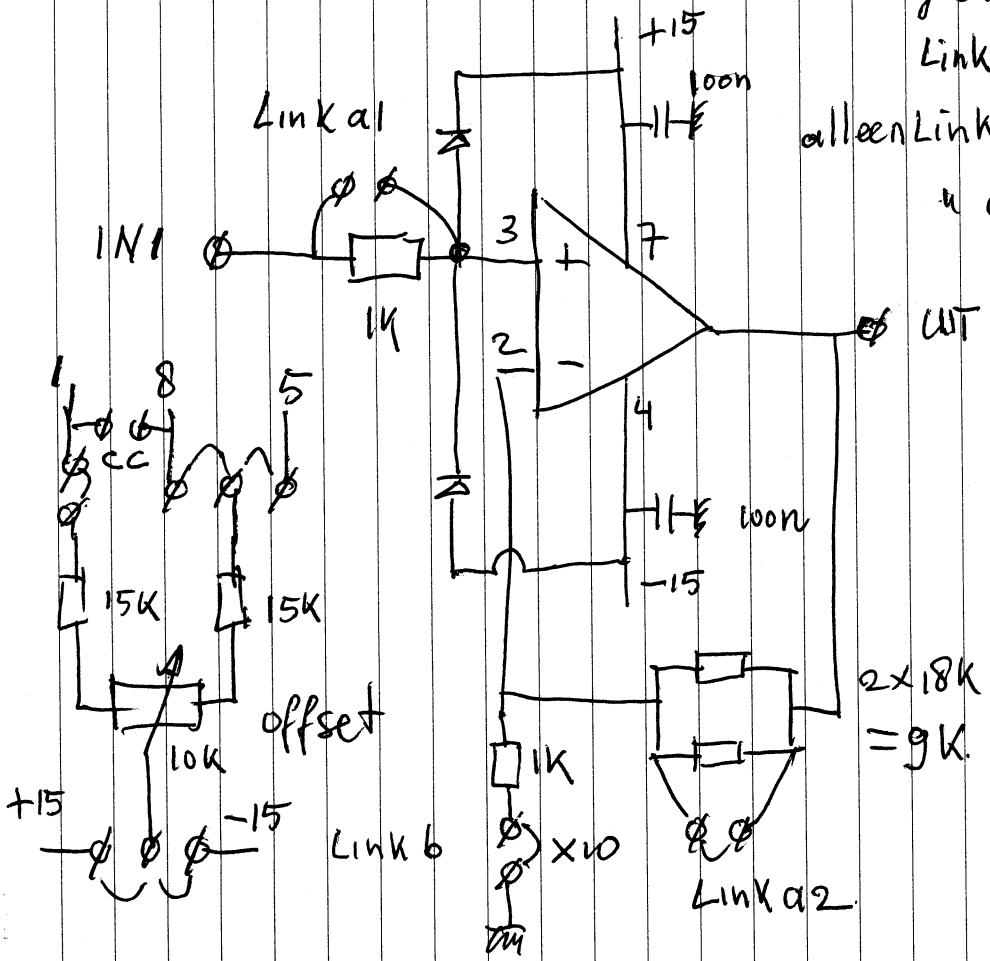 +15
Link
100n
Link a1
alleen Link
IN1
3
+
7
1K
2
-
UIT
1
8
5
4
CC
100n
-15
15K
15K
2x18K
offset
= 9K.
10K
1K
+15
-15
Link b
x10
Link a2